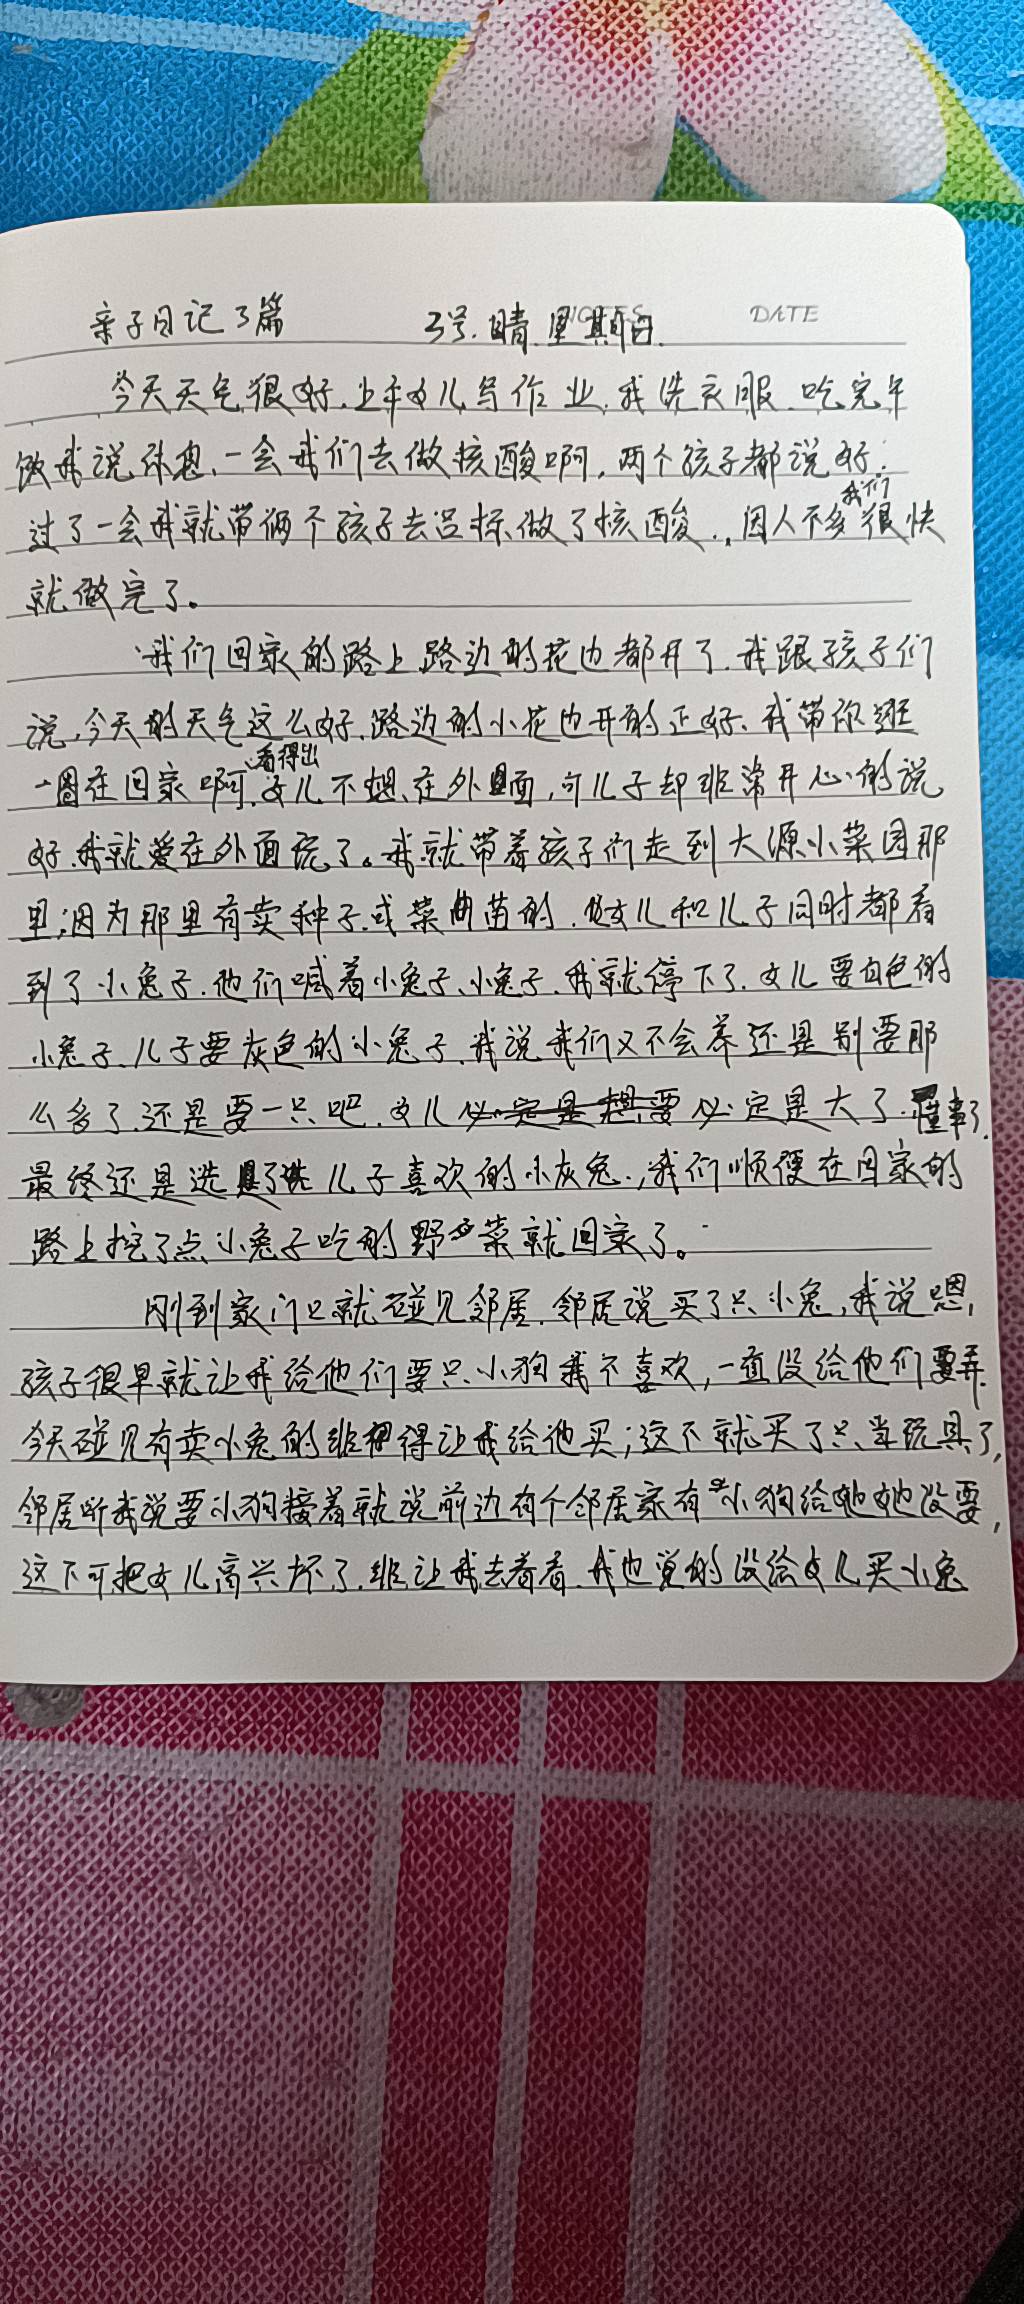 亲子日记3篇 3号.晴.星期日.
NOTES DATE
今天天气很好.上午女儿写作业.我洗衣服.吃完午
饭我说休息.一会我们去做核酸啊,两个孩子都说好.
过了一会我就带俩个孩子去吕标做了核酸.,因人不多我们很快
就做完了。
我们回家的路上.路边的花也都开了.我跟孩子们
说,今天的天气这么好.路边的小花也开的正好.我带你逛
一圈在回家啊.看得出女儿不想.在外面,可儿子却非常开心的说
好.我就爱在外面玩了。我就带着孩子们走到大源小菜园那
里;因为那里有卖种子.或菜苗的.女儿和儿子同时都看
到了小兔子.他们喊着小兔子、小兔子.我就停下了.女儿要白色的
小兔子.儿子要灰色的小兔子.我说我们又不会养还是别要那
么多了.还是要一只吧.女儿必定是大了.懂事了.
最终还是选了儿子喜欢的小灰兔.,我们顺便在回家的
路上挖了点小兔子吃的野菜就回家了。
刚到家门口就碰见邻居.邻居说买了只小兔,我说嗯,
孩子很早就让我给他们要只小狗我不喜欢,一直没给他们弄.
今天碰见有卖小兔的非得让我给他买;这不就买了只当玩具了,
邻居听我说要小狗接着就说前边有个邻居家有小狗给她她没要,
这下可把女儿高兴坏了.非让我去看看.我也觉的没给女儿买小兔